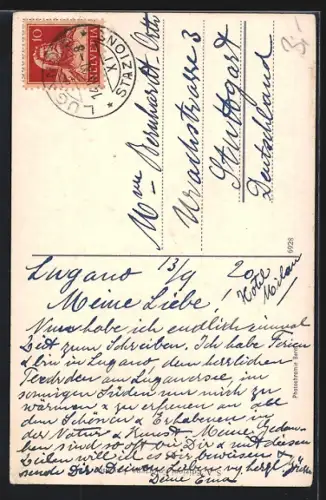 10
HELVETIA
LUGANO
STAZIONE
14.IX
Mme Bernhardt-Otto
Urachstrasse 3
Stuttgart
Deutschland
9926
Lugano 13/9 20
Hotel
Milan
Meine Liebe!
Nun habe ich endlich einmal
Zeit zum Schreiben. Ich habe Ferien
& bin in Lugano, dem herrlichen
am Luganersee, im
sonnigen Süden um mich zu
wärmen & zu erfreuen an all
dem Schönen & Erhabenen in
der Natur & Kunst. Meine Gedan-
ken sind so oft bei Dir & mit diesen
Zeilen will ich es Dir beweisen &
sende Dir & Deinen Lieben herzl. Grüsse
Deine Erna